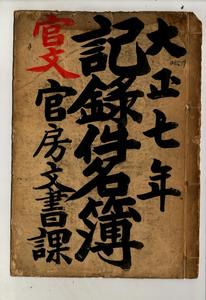 大正七年
記録件名簿
官文
官房文書課